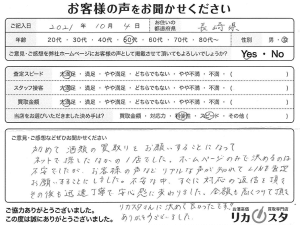 お客様の声をお聞かせください
ご記入日 2021年 10月 4日 お住いの都道府県 長崎県
年齢 20代・30代・40代・50代・60代・70代・80代〜 性別 男・女
ご意見・ご感想を弊社ホームページにお客様の声として掲載させて頂いてもよろしいでしょうか? Yes・No
査定スピード 大満足・満足・やや満足・どちらでもない・やや不満・不満・( )
スタッフ接客 大満足・満足・やや満足・どちらでもない・やや不満・不満・( )
買取金額 大満足・満足・やや満足・どちらでもない・やや不満・不満・( )
当店をお選びいただきました決め手は? 買取金額・対応力・ ・スピード・その他( )
ご意見・ご感想などぜひお聞かせください
初めて酒類の買取りをお願いすることになって
ネットで探したなかの1店でした。ホームページのみで決めるのは
不安でしたが、お客様の声などリアルな声が知れてLINE査定
お願いすることにしました。不安な中、すぐに対応の返信を頂き
その後も迅速丁寧で安心感に変わりました。金額も高くつけて頂き
リカスタさんに決めて良かったと
ありがとうございました。
ご協力ありがとうございました。
この度は誠にありがとうございました。
お酒高価買取専門店
リカスタ